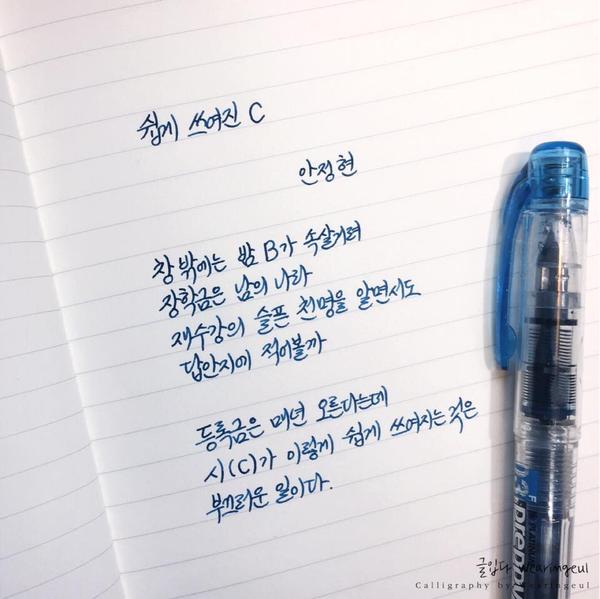 쉽게 쓰여진 C
안정현
창 밖에는 밤 B가 속살거려
장학금은 남의 나라
재수강의 슬픈 천명을 알면서도
답안지에 적어볼까
등록금은 매년 오른다는데
시(C)가 이렇게 쉽게 쓰여지는 것은
부끄러운 일이다.
03 Preppy
글입다 wearingeul
Calligraphy by Wearingeul